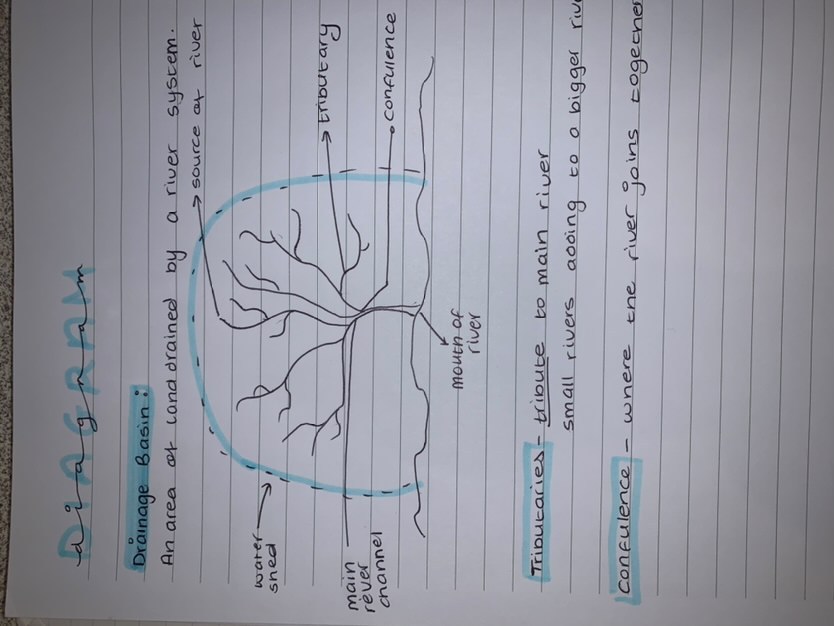 DIAGRAM
diagram
Drainage Basin:
An area of land drained by a river system.
source of river
tributary
confulence
water
shed
main
rever
channel
mouth of
river
Tributaries - tribute to main river
small rivers adding to a bigger
Confulence - where the river joins together